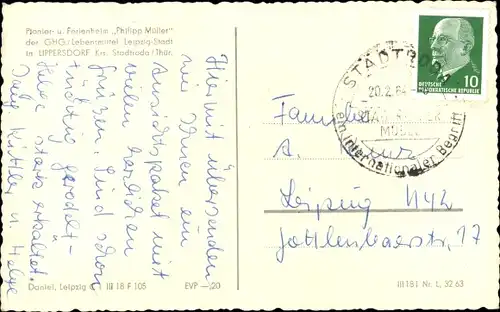 Pionier- u. Ferienheim „Philipp Müller"
der GHG/Lebensmittel Leipzig-Stadt
in LIPPERSDORF Krs. Stadtroda/Thür.
Hiermit übersenden
wir Ihnen ein
Ansichtspaket mit
vielen herzlichen
Grüßen. Sind schon
tüchtig gerodelt -
Helge stark erkältet.
u. Helge
Daniel, Leipzig III 18 F 105
EVP -,20
III 191 Nr. L. 32.63
DEUTSCHE
DEMOKRATISCHE REPUBLIK 10
STADTRODA
20.2.64
MÖBEL
ein internationaler Begriff
Familie
A.
Leipzig N42
17